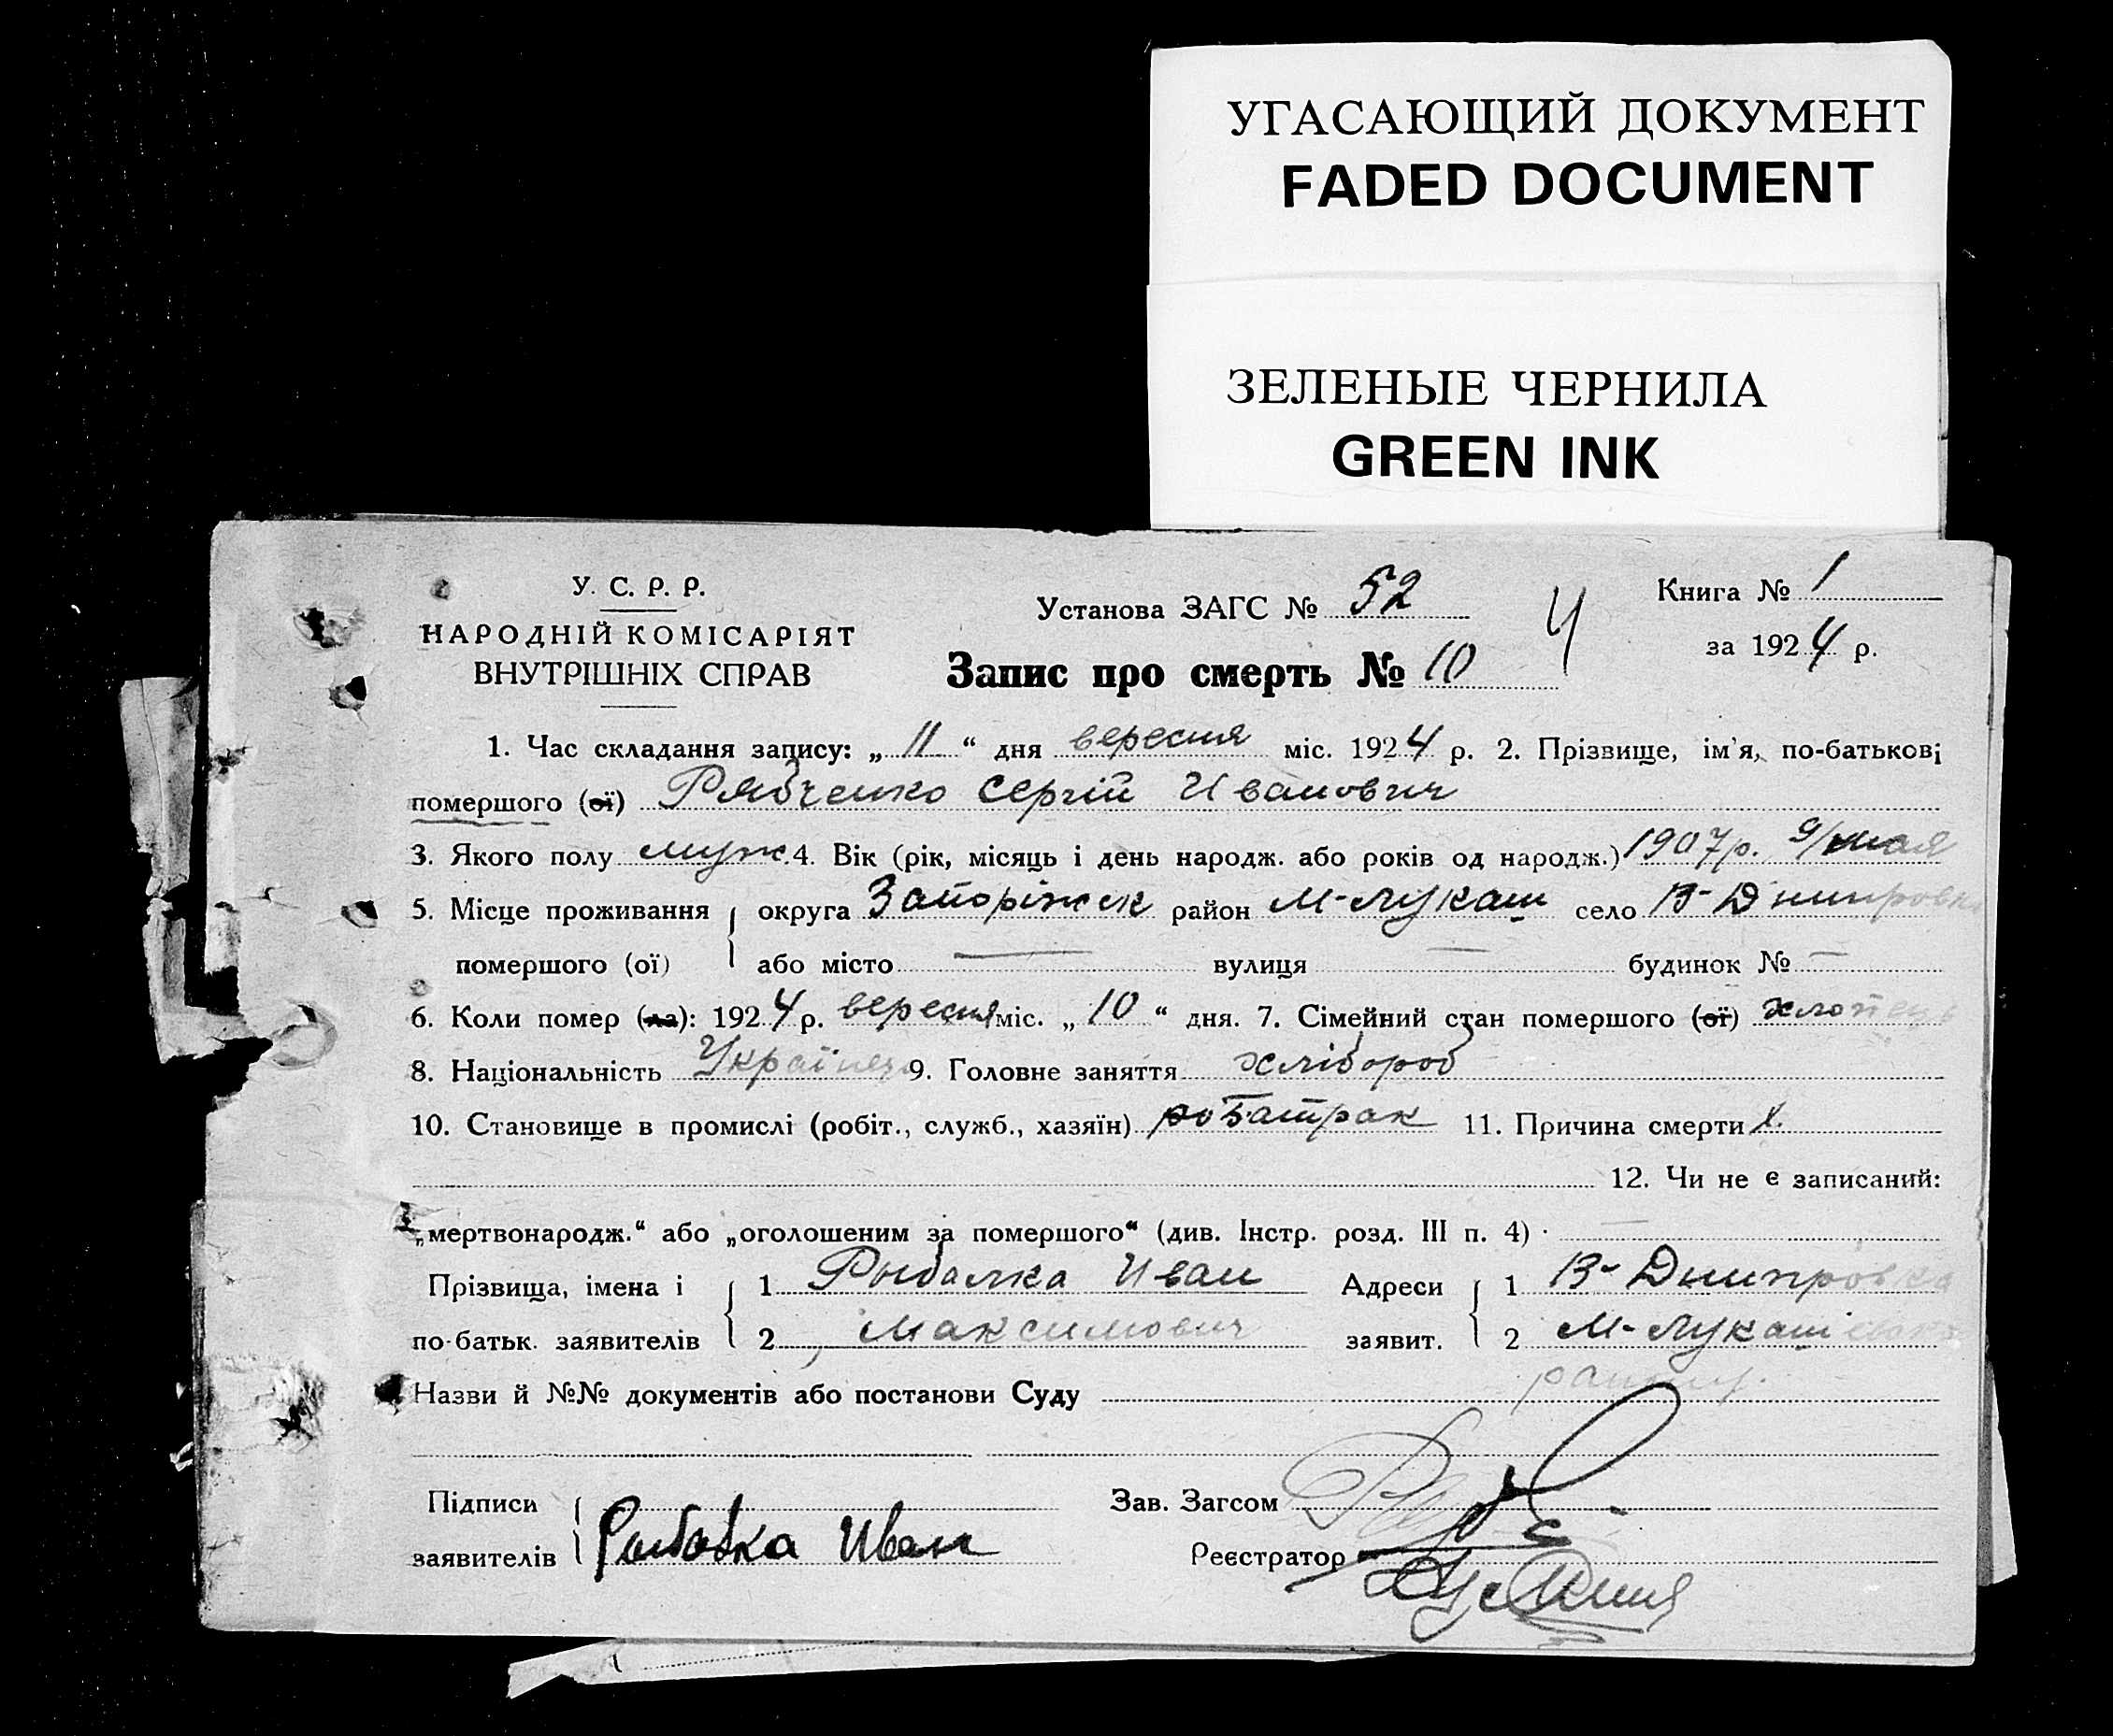 УГАСАЮЩИЙ ДОКУМЕНТ
FADED DOCUMENT
ЗЕЛЕНЫЕ ЧЕРНИЛА
GREEN INK
У. С. Р. Р.
НАРОДНІЙ КОМІСАРІЯТ
ВНУТРІШНІХ СПРАВ
Установа ЗАГС № 52
Запис про смерть № 10
Книга № 1
за 1924 р.
1. Час складання запису: „11“ дня вересня міс. 1924 р. 2. Прізвище, ім'я, по-батькові
помершого (ої) Рябченко Сергій Иванович
3. Якого полу муж. 4. Вік (рік, місяць і день народж. або років од народж.) 1907р. 9/мая
5. Місце проживання округа Запоріжск район М-Лукаш село В-Днипровка
помершого (ої) або місто — вулиця — будинок № —
6. Коли помер (ла): 1924 р. вересня міс. „10“ дня. 7. Сімейний стан помершого (ої) хлопець
8. Національність Українец 9. Головне заняття хлібороб
10. Становище в промислі (робіт., служб., хазяїн) батрак 11. Причина смерти
12. Чи не є записаний:
„мертвонародж.“ або „оголошеним за помершого“ (див. Інстр. розд. III п. 4) —
Прізвища, імена і 1 Рыбалка Иван Адреси 1 В-Днипровка
по-батьк. заявителів 2 Максимович заявит. 2 М-Лукаші
Назви й №№ документів або постанови Суду
Підписи Зав. Загсом
заявителів Рыбалка Иван Реєстратор